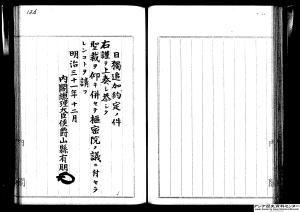 日獨追加約定ノ件
右謹テ上奏シ恭シク
聖裁ヲ仰キ併セテ樞密院ノ議ニ付セラ
レンコトヲ請フ
明治三十一年十二月
内閣總理大臣侯爵山縣有朋